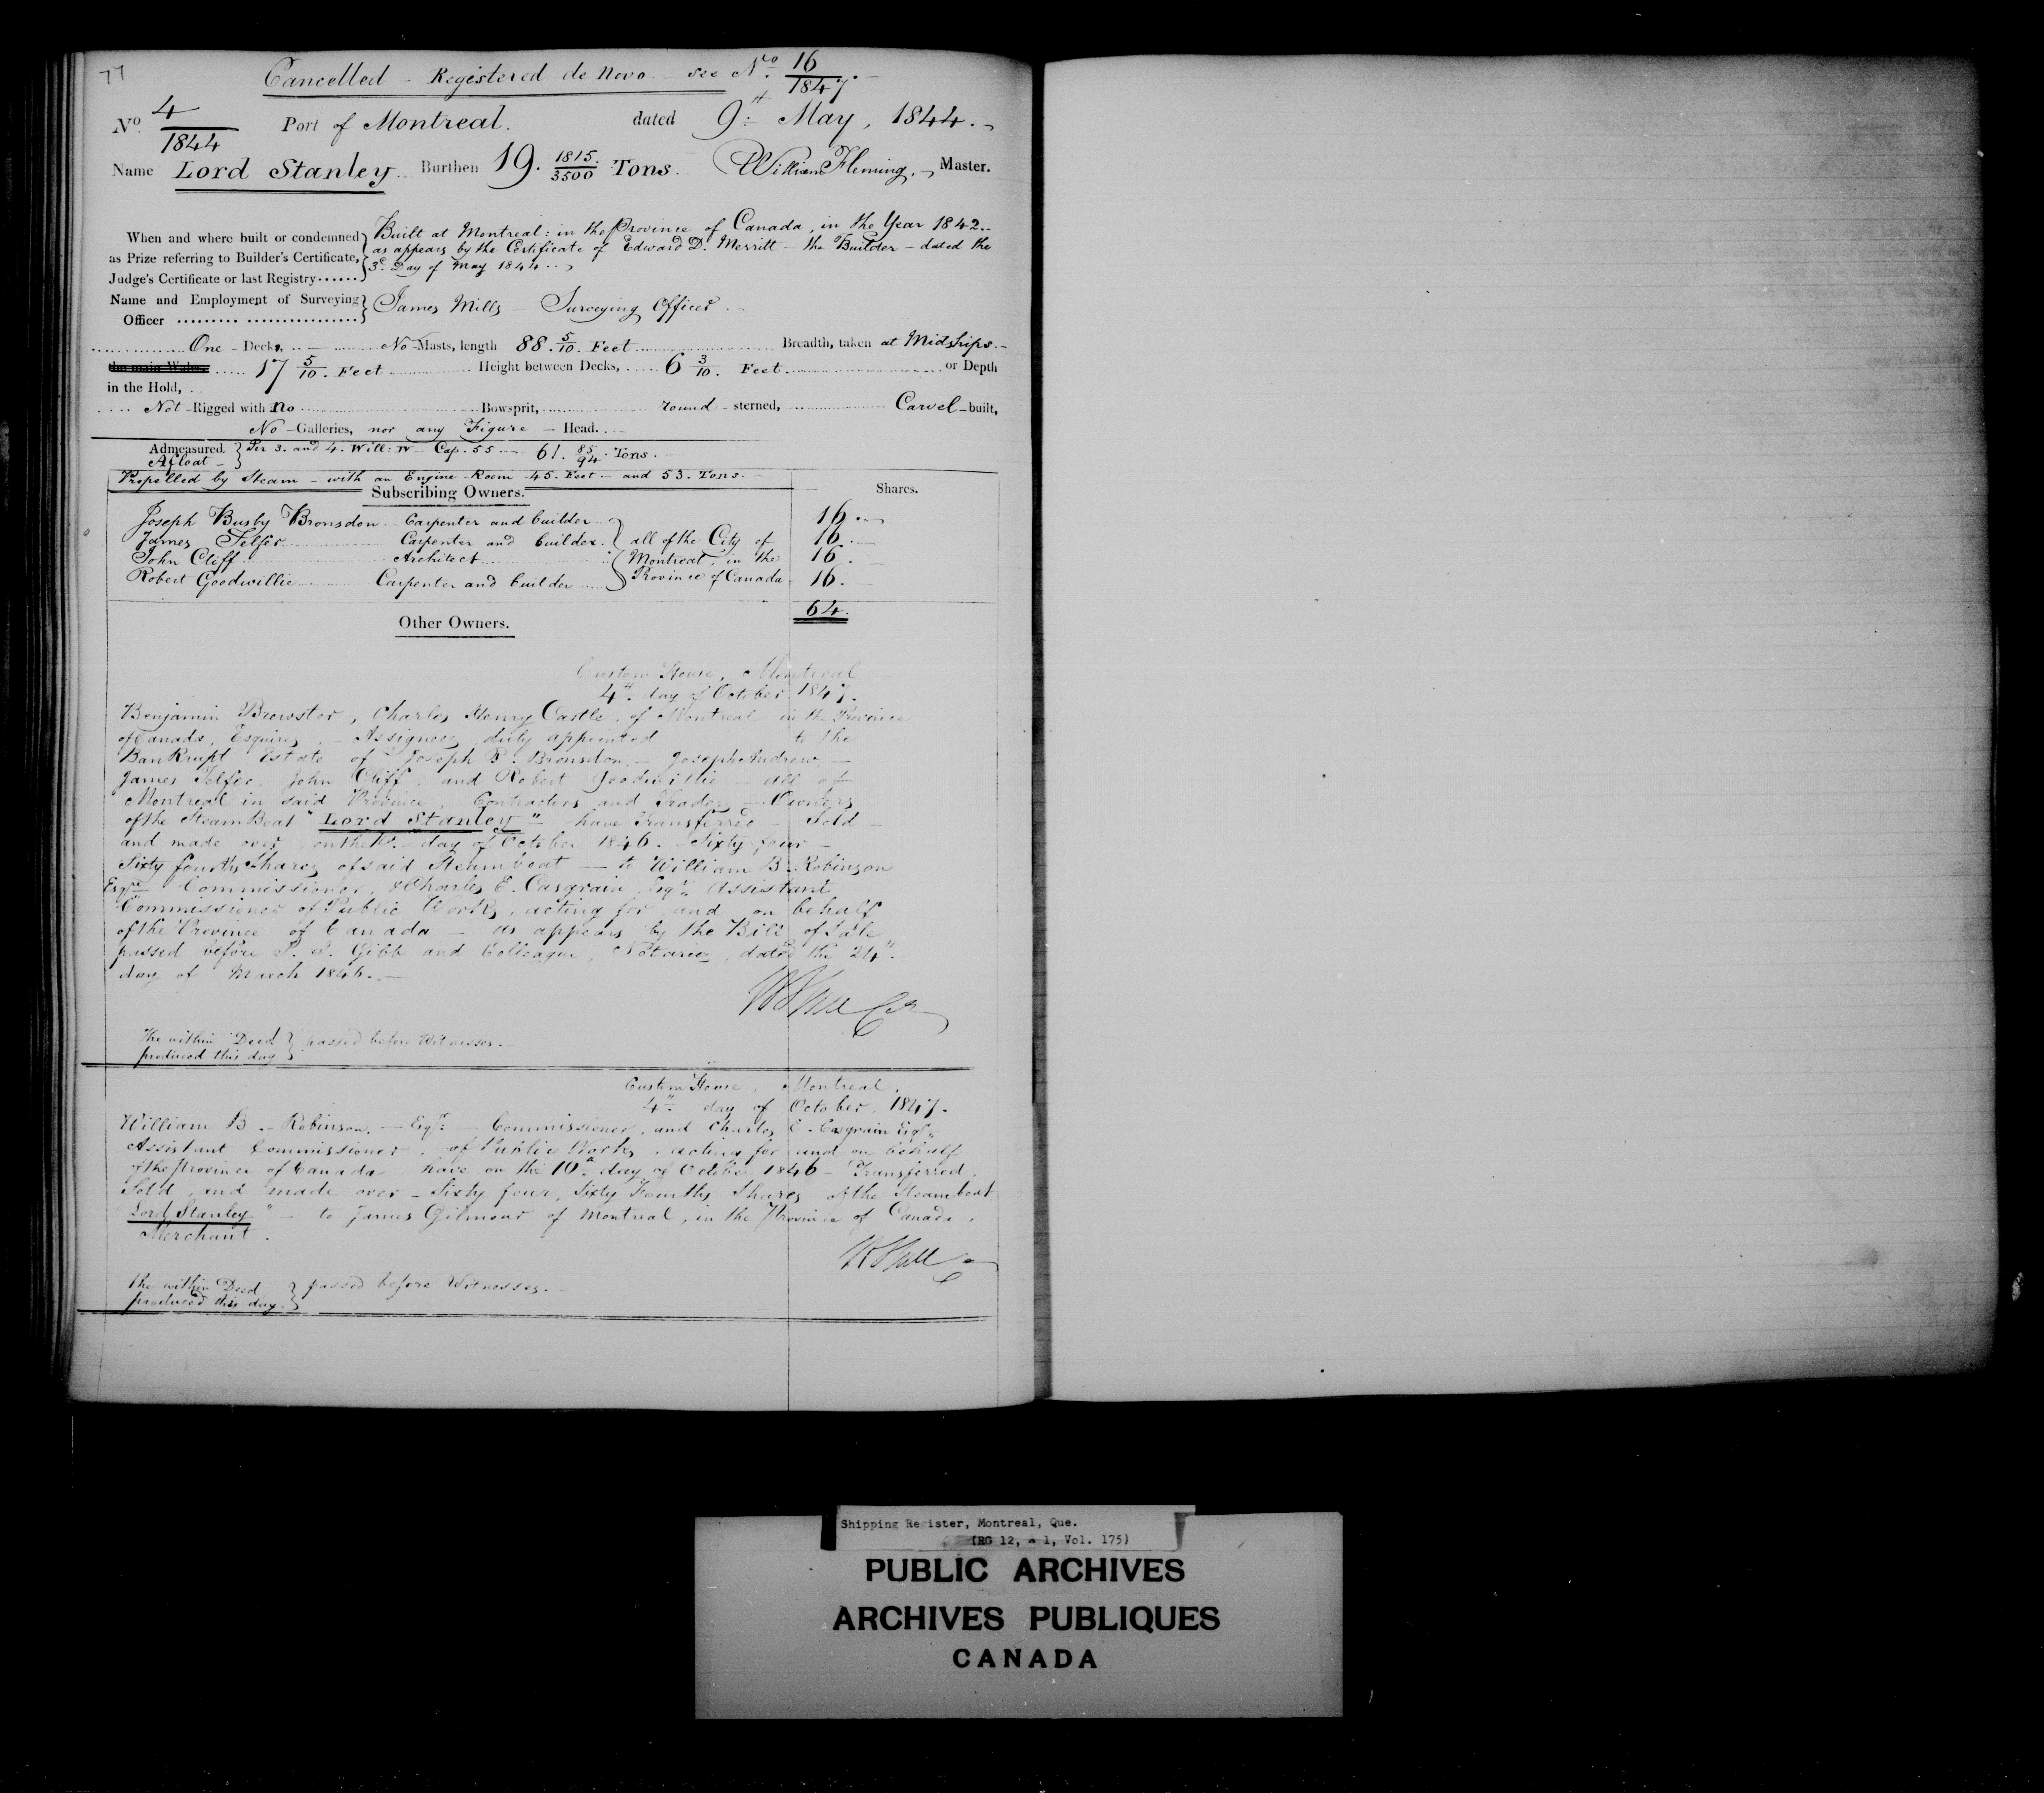 77
Cancelled - Registered de Novo - see No. 16/1847.
No. 4/1844 Port of Montreal. dated 9th May, 1844.
Name Lord Stanley Burthen 19. 1815/3500 Tons. William Fleming, Master.
When and where built or condemned as Prize referring to Builder's Certificate, Judge's Certificate or last Registry
Built at Montreal: in the Province of Canada, in the Year 1842.
as appears by the Certificate of Edward D. Merritt - the Builder - dated the
3d. Day of May 1844.
Name and Employment of Surveying Officer
James Mills - Surveying Officer
One - Decks, No Masts, length 88. 5/10. Feet Breadth, taken at Midships.
the main Wales 17 5/10. Feet Height between Decks, 6 3/10. Feet. or Depth
in the Hold,
Not - Rigged with no Bowsprit, round - sterned, Carvel - built,
No - Galleries, nor any Figure - Head.
Admeasured Afloat - Per 3. and 4. Will: IV - Cap. 55 - 61. 85/94. Tons.
Propelled by Steam - with an Engine - Room 45. Feet - and 53. Tons.
Subscribing Owners. Shares.
Joseph Busby Bronsdon - Carpenter and builder 16.
James Telfer Carpenter and builder. all of the City of 16.
John Cliff Architect Montreal, in the 16.
Robert Goodwillie Carpenter and builder Province of Canada 16.
64.
Other Owners.
Custom House, Montreal
4th. day of October 1847.
Benjamin Brewster, Charles Henry Castle, of Montreal in the Province
of Canada, Esquires, - Assignees duly appointed to the
Bankrupt Estate of Joseph B. Bronsdon, - Joseph Andrew, -
James Telfer, John Cliff, and Robert Goodwillie - all of
Montreal in said Province, Contractors and Traders - Owners
of the Steam Boat "Lord Stanley" - have Transferred - Sold -
and made over, on the day of October 1846. - Sixty four -
Sixty fourths Shares of said Steamboat - to William B. Robinson
Esqre. Commissioner, & Charles E. Casgrain, Esqr. Assistant
Commissioner of Public Works, acting for, and on behalf
of the Province of Canada - as appears by the Bill of Sale
passed before Gibb and Colleague, Notaries, dated the 24th.
day of March 1846. -
The within Deed produced this day } passed before Witnesses. -
Custom House, Montreal,
4th. day of October, 1847.
William B. - Robinson, - Esqr. - Commissioner, and Charles E. Casgrain Esqr.
Assistant Commissioner, of Public Works, acting for and on behalf
of the Province of Canada have on the 10th day of October 1846 - Transferred,
Sold, and made over - Sixty four, Sixty Fourths Shares of the Steamboat
Lord Stanley" - to James Gilmour of Montreal, in the Province of Canada,
Merchant.
The within Deed produced this day. } passed before Witnesses. -
Shipping Register, Montreal, Que.
(RG 12, a 1, Vol. 175)
PUBLIC ARCHIVES
ARCHIVES PUBLIQUES
CANADA